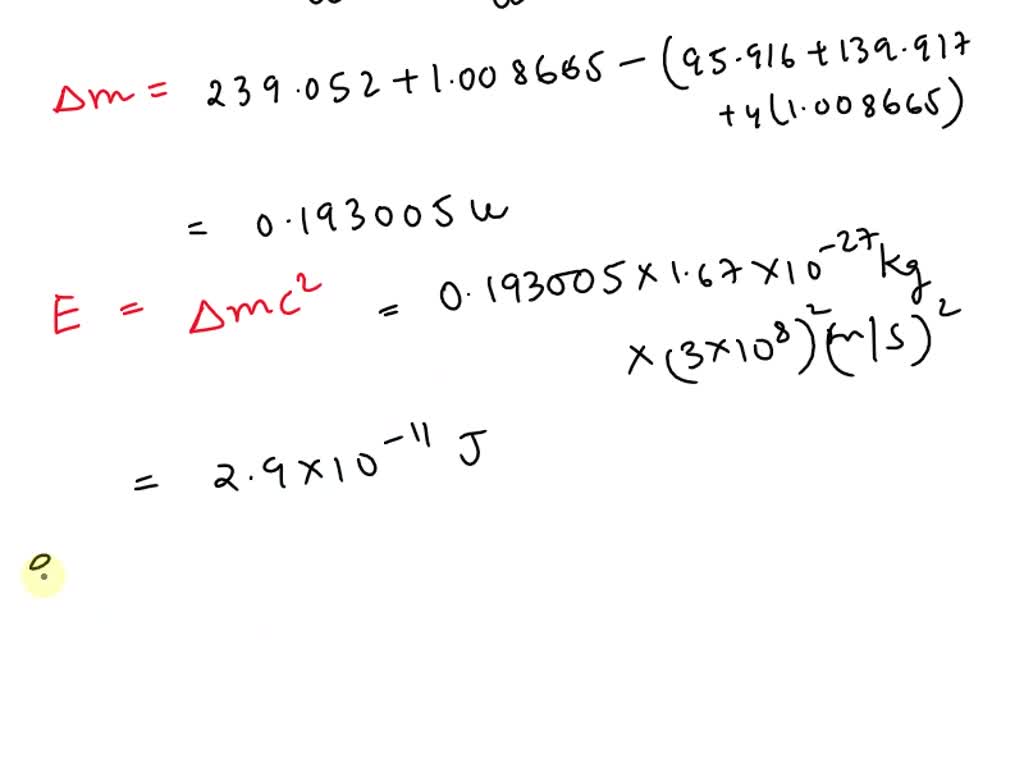 Δm = 239.052 + 1.008665 - (95.916 + 139.917
+ 4(1.008665)
= 0.193005 u
E = Δmc² = 0.193005 × 1.67 × 10⁻²⁷ kg
× (3×10⁸)² (m/s)²
= 2.9 × 10⁻¹¹ J